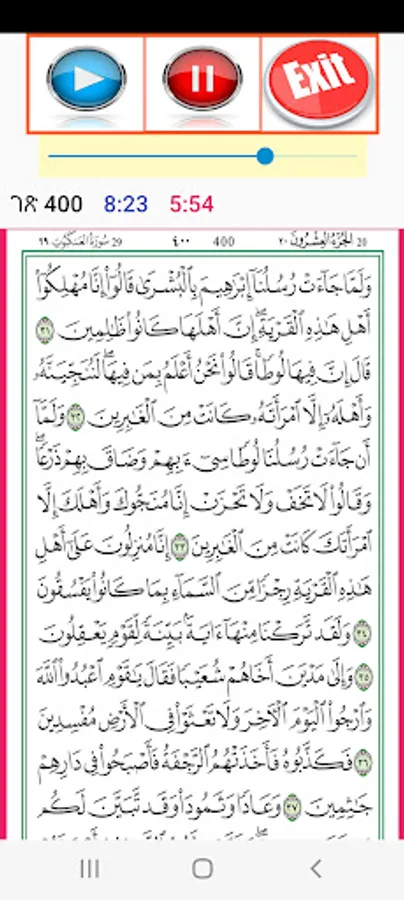 Exit
ገጽ 400 8:23 5:54
20 الجزء العشرون ٢٠ 400 ٤٠٠ 29 سورة العنكبوت ٢٩
وَلَمَّا جَآءَتْ رُسُلُنَآ إِبْرَٰهِيمَ بِٱلْبُشْرَىٰ قَالُوٓا۟ إِنَّا مُهْلِكُوٓا۟
أَهْلِ هَٰذِهِ ٱلْقَرْيَةِ ۖ إِنَّ أَهْلَهَا كَانُوا۟ ظَٰلِمِينَ ٣١
قَالَ إِنَّ فِيهَا لُوطًا ۚ قَالُوا۟ نَحْنُ أَعْلَمُ بِمَن فِيهَا ۖ لَنُنَجِّيَنَّهُۥ
وَأَهْلَهُۥٓ إِلَّا ٱمْرَأَتَهُۥ كَانَتْ مِنَ ٱلْغَٰبِرِينَ ٣٢ وَلَمَّآ
أَن جَآءَتْ رُسُلُنَا لُوطًا سِىٓءَ بِهِمْ وَضَاقَ بِهِمْ ذَرْعًا ۖ
وَقَالُوا۟ لَا تَخَفْ وَلَا تَحْزَنْ ۖ إِنَّا مُنَجُّوكَ وَأَهْلَكَ إِلَّا
ٱمْرَأَتَكَ كَانَتْ مِنَ ٱلْغَٰبِرِينَ ٣٣ إِنَّا مُنزِلُونَ عَلَىٰٓ أَهْلِ
هَٰذِهِ ٱلْقَرْيَةِ رِجْزًا مِّنَ ٱلسَّمَآءِ بِمَا كَانُوا۟ يَفْسُقُونَ
٣٤ وَلَقَد تَّرَكْنَا مِنْهَآ ءَايَةًۢ بَيِّنَةً لِّقَوْمٍ يَعْقِلُونَ
٣٥ وَإِلَىٰ مَدْيَنَ أَخَاهُمْ شُعَيْبًا فَقَالَ يَٰقَوْمِ ٱعْبُدُوا۟ ٱللَّهَ
وَٱرْجُوا۟ ٱلْيَوْمَ ٱلْءَاخِرَ وَلَا تَعْثَوْا۟ فِى ٱلْأَرْضِ مُفْسِدِينَ
٣٦ فَكَذَّبُوهُ فَأَخَذَتْهُمُ ٱلرَّجْفَةُ فَأَصْبَحُوا۟ فِى دَارِهِمْ
جَٰثِمِينَ ٣٧ وَعَادًا وَثَمُودَا۟ وَقَد تَّبَيَّنَ لَكُم